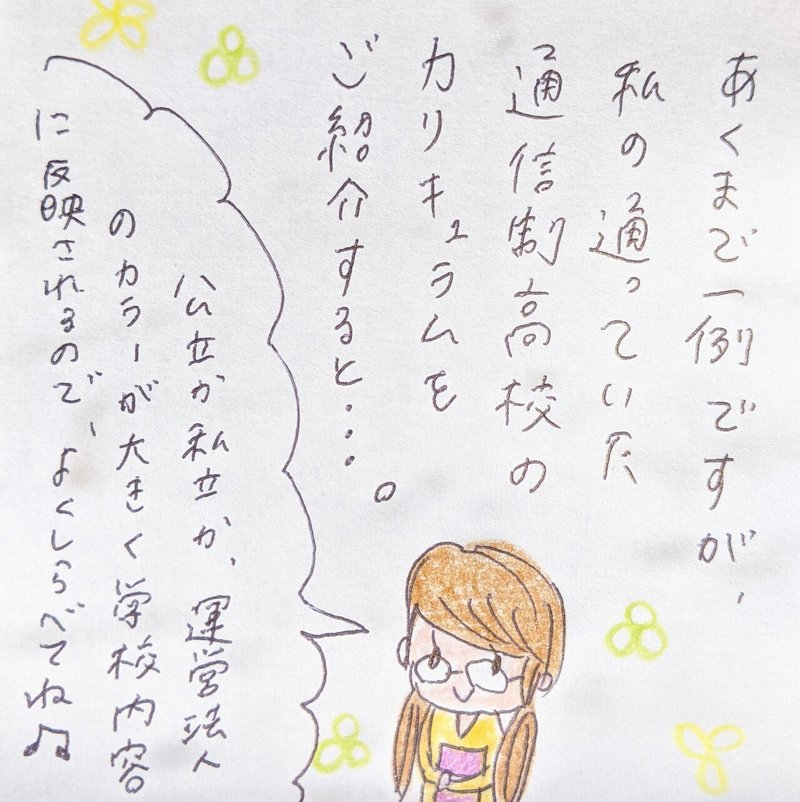 あくまで一例ですが、
私の通っていた
通信割高校の
カリキュラムを
ご紹介すると・・・。
公立か私立か、運営法人
のカラーが大きく学校内容
に反映されるので、よくしらべてね♫